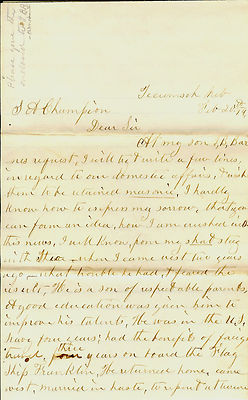 Tecumseh Neb
Feb 25th
S A Champion
Dear Sir
At my son
nes request, I will write a few lines,
in regard to our domestic affairs, & wish
them to be retained masonic, I hardly
know how to express my sorrow, that you
can form an idea, how I am crushed with
this news, I will know, pore my
it. when I came west two years
ago — what trouble he had, I feared the
results — He is a son of respectable parents,
A good education was given him to
improve his talents, He was in the U.S.
four years; had the benefits of
travel, three years on board the Flag
Ship Franklin. He returned home, came
west, married in haste, to repent at leisure